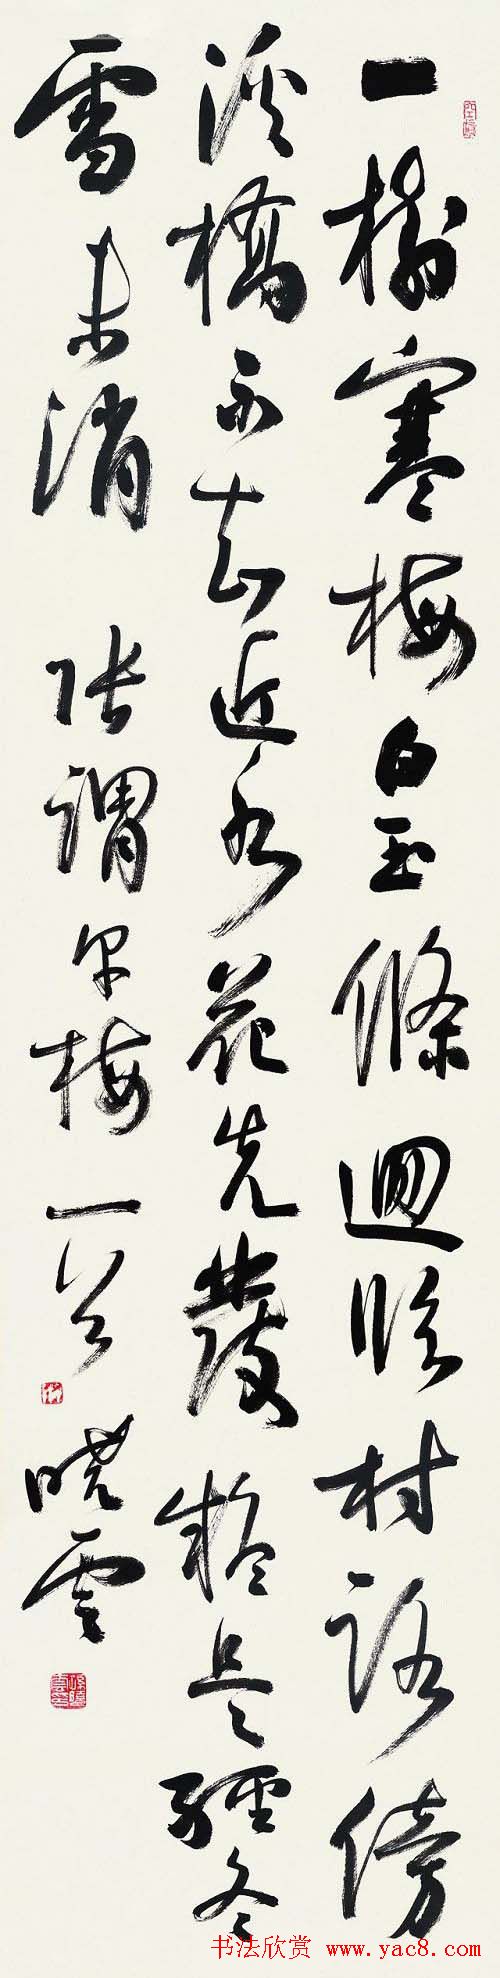 一樹寒梅白玉條迥臨村路傍
溪橋不知近水花先發疑是經冬
雪未消 張謂早梅一首 曉雲
书法欣赏 www.yac8.com